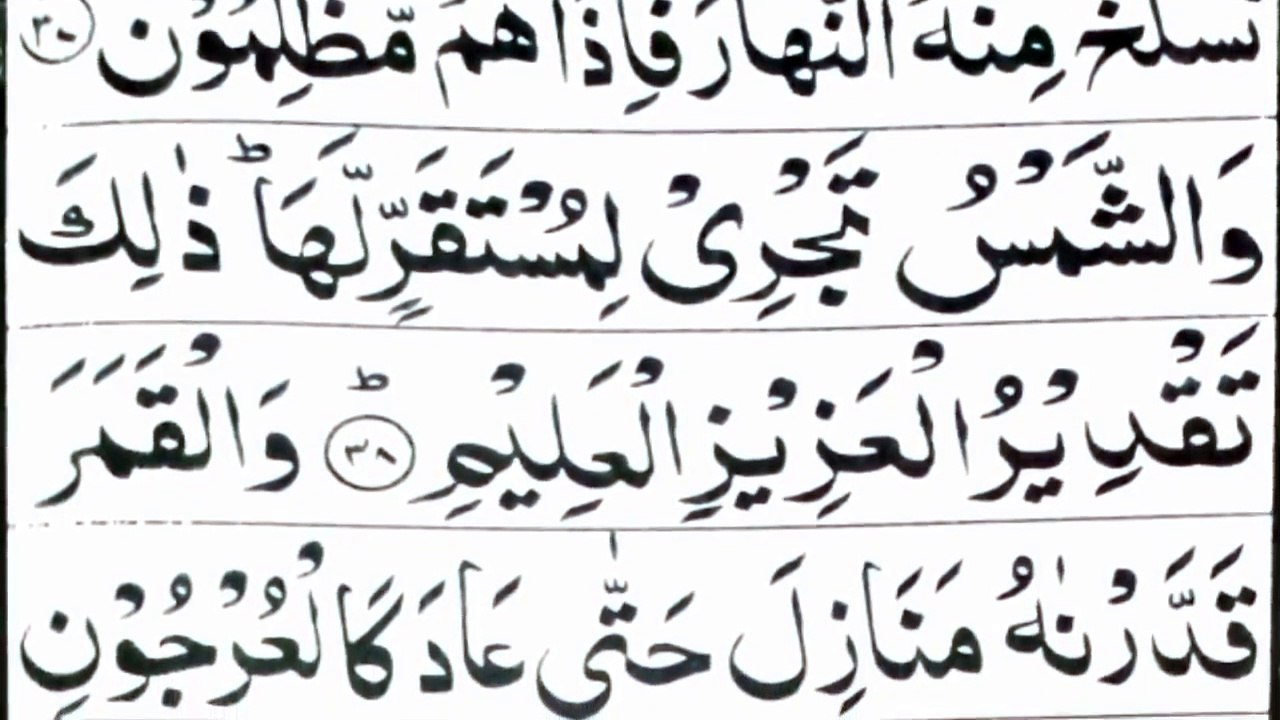 نَسْلَخُ مِنْهُ النَّهَارَ فَاِذَا هُمْ مُّظْلِمُوْنَ ﴿۳۷﴾
وَالشَّمْسُ تَجْرِیْ لِمُسْتَقَرٍّ لَّهَا ؕ ذٰلِكَ
تَقْدِیْرُ الْعَزِیْزِ الْعَلِیْمِ ﴿۳۸﴾ؕ وَالْقَمَرَ
قَدَّرْنٰهُ مَنَازِلَ حَتّٰی عَادَ كَالْعُرْجُوْنِ